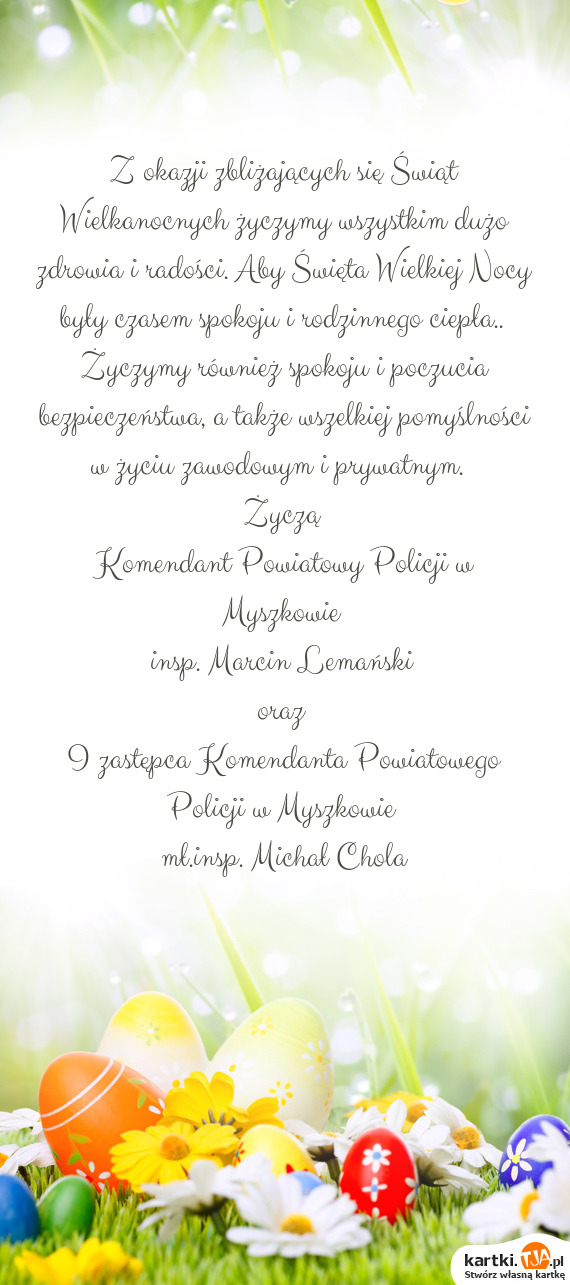 Z okazji zbliżających się Świąt
Wielkanocnych życzymy wszystkim dużo
zdrowia i radości. Aby Święta Wielkiej Nocy
były czasem spokoju i rodzinnego ciepła..
Życzymy również spokoju i poczucia
bezpieczeństwa, a także wszelkiej pomyślności
w życiu zawodowym i prywatnym.
Życzą
Komendant Powiatowy Policji w
Myszkowie
insp. Marcin Lemański
oraz
I zastępca Komendanta Powiatowego
Policji w Myszkowie
mł.insp. Michał Chola
kartki.TJA.pl
Stwórz własną kartkę